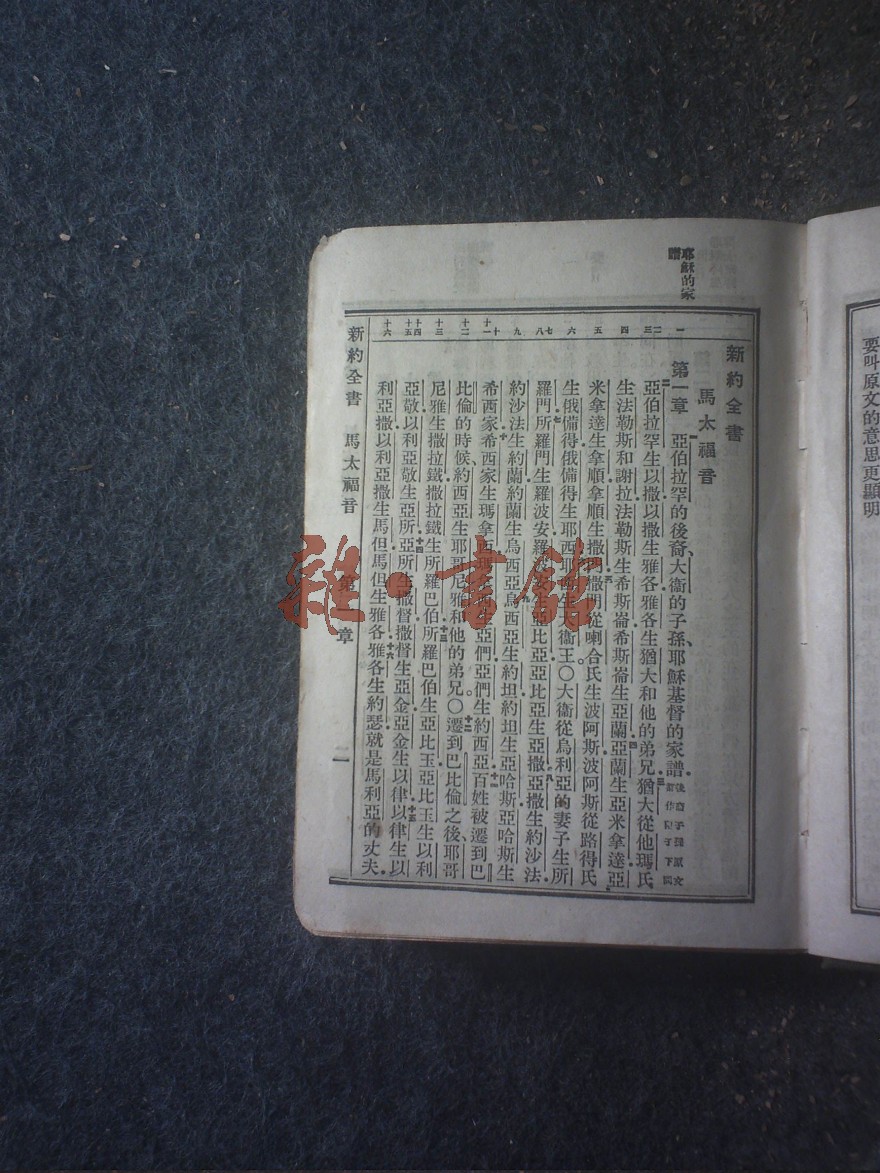 要叫原文的意思更顯明
耶穌的家譜
一 二 三 四 五 六 七 八 九 十 十一 十二 十三 十四 十五 十六
新約全書
馬太福音
第一章 一亞伯拉罕的後裔、大衛的子孫、耶穌基督的家譜.後裔子孫原文都作兒子下同
二亞伯拉罕生以撒以撒生雅各雅各生猶大和他的弟兄三猶大從他瑪氏
生法勒斯和謝拉法勒斯生希斯崙希斯崙生亞蘭四亞蘭生亞米拿達亞
米拿達生拿順拿順生撒門五撒門從喇合氏生波阿斯波阿斯從路得氏
生俄備得俄備得生耶西六耶西生大衛王○大衛從烏利亞的妻子生所
羅門七所羅門生羅波安羅波安生亞比亞亞比亞生亞撒八亞撒生約沙法
約沙法生約蘭約蘭生烏西亞九烏西亞生約坦約坦生亞哈斯亞哈斯生
希西家十希西家生瑪拿西瑪拿西生亞們亞們生約西亞十一百姓被遷到巴
比倫的時候、約西亞生耶哥尼雅和他的弟兄。○十二遷到巴比倫之後、耶哥
尼雅生撒拉鐵撒拉鐵生所羅巴伯十三所羅巴伯生亞比玉亞比玉生以利
亞敬以利亞敬生亞所十四亞所生撒督撒督生亞金亞金生以律十五以律生以
利亞撒以利亞撒生馬但馬但生雅各十六雅各生約瑟就是馬利亞的丈夫.
新約全書 馬太福音 第一章
雜·書館